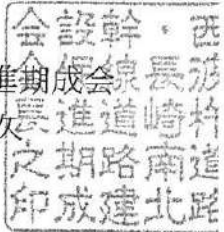 進期成会
西彼杵道路
・長崎南北
幹線道路建
設促進期成
会会長之印